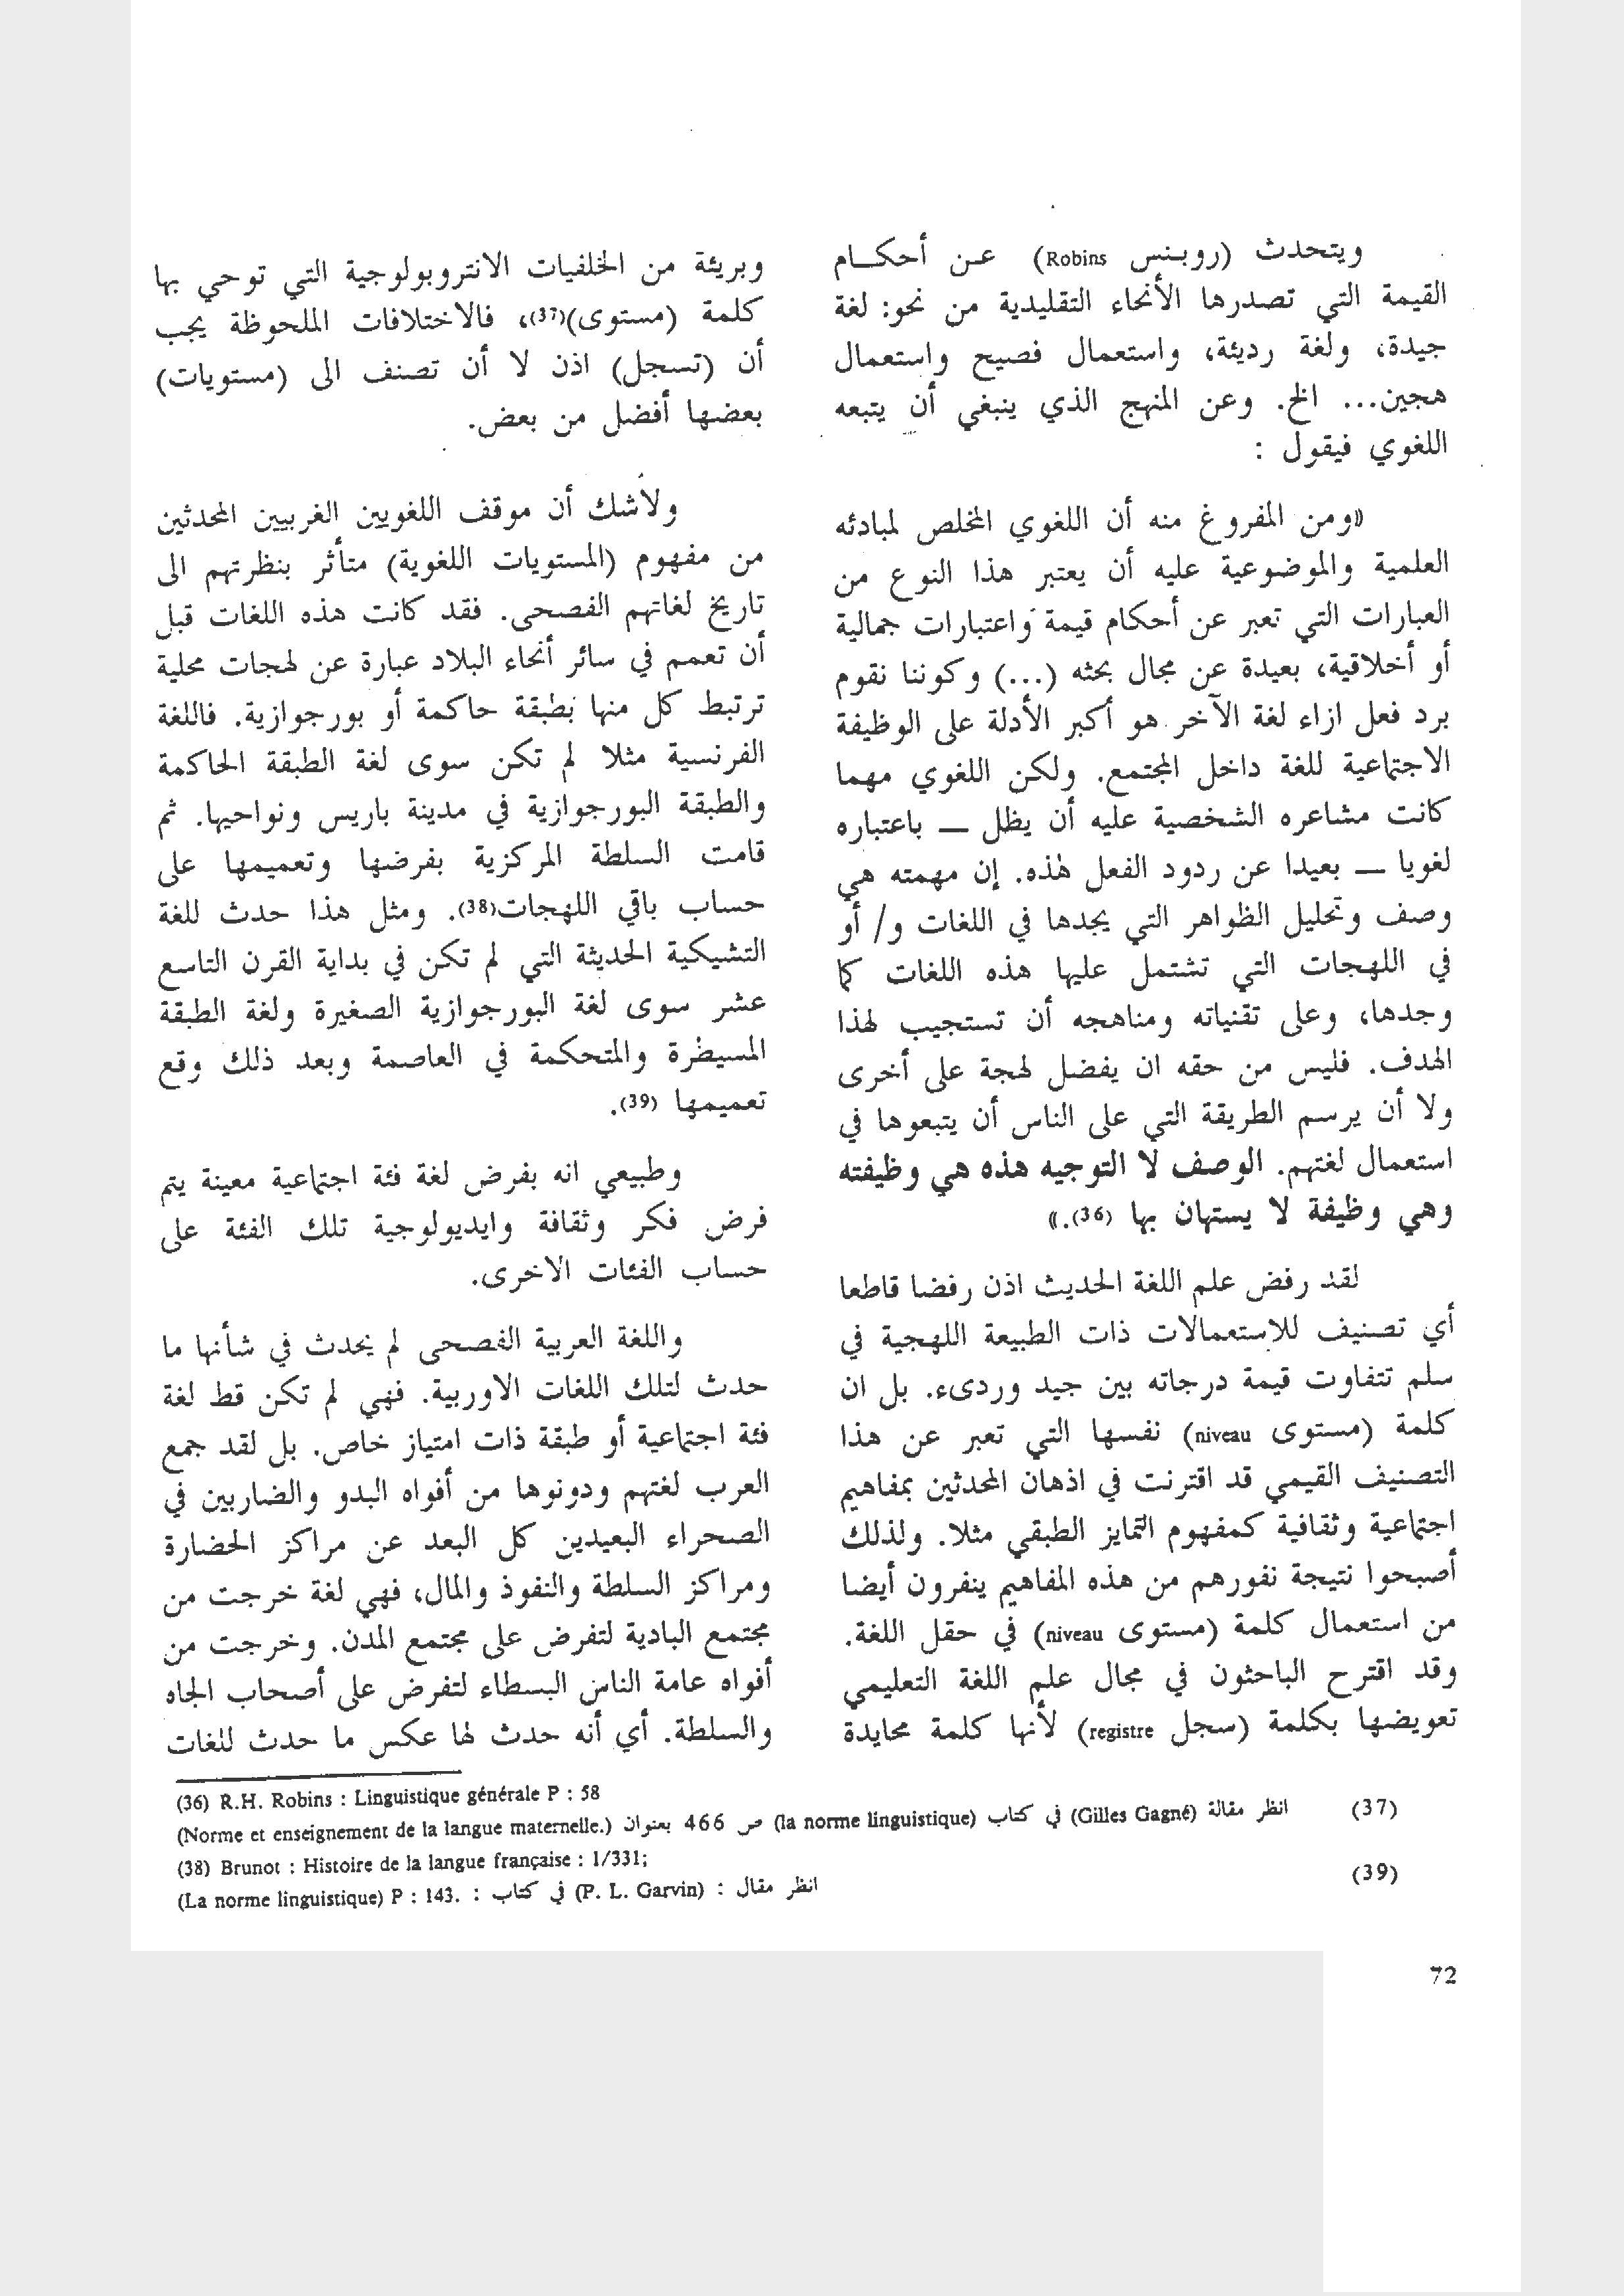 ويتحدث (روبنس Robins) عن أحكام
القيمة التي تصدرها الأنحاء التقليدية من نحو: لغة
جيدة، ولغة رديئة، واستعمال فصيح واستعمال
هجين... الخ. وعن المنهج الذي ينبغي أن يتبعه
اللغوي فيقول :
«ومن المفروغ منه أن اللغوي المخلص لمبادئه
العلمية والموضوعية عليه أن يعتبر هذا النوع من
العبارات التي تعبر عن أحكام قيمة واعتبارات جمالية
أو أخلاقية، بعيدة عن مجال بحثه (...) وكوننا نقوم
برد فعل ازاء لغة الآخر هو أكبر الأدلة على الوظيفة
الاجتماعية للغة داخل المجتمع. ولكن اللغوي مهما
كانت مشاعره الشخصية عليه أن يظل — باعتباره
لغويا — بعيدا عن ردود الفعل هذه. إن مهمته هي
وصف وتحليل الظواهر التي يجدها في اللغات و/ أو
في اللهجات التي تشتمل عليها هذه اللغات كما
وجدها، وعلى تقنياته ومناهجه أن تستجيب لهذا
الهدف. فليس من حقه ان يفضل لهجة على أخرى
ولا أن يرسم الطريقة التي على الناس أن يتبعوها في
استعمال لغتهم. الوصف لا التوجيه هذه هي وظيفته
وهي وظيفة لا يستهان بها (36).»
لقد رفض علم اللغة الحديث اذن رفضا قاطعا
أي تصنيف للاستعمالات ذات الطبيعة اللهجية في
سلم تتفاوت قيمة درجاته بين جيد وردىء. بل ان
كلمة (مستوى niveau) نفسها التي تعبر عن هذا
التصنيف القيمي قد اقترنت في اذهان المحدثين بمفاهيم
اجتماعية وثقافية كمفهوم التمايز الطبقي مثلا. ولذلك
أصبحوا نتيجة نفورهم من هذه المفاهيم ينفرون أيضا
من استعمال كلمة (مستوى niveau) في حقل اللغة.
وقد اقترح الباحثون في مجال علم اللغة التعليمي
تعويضها بكلمة (سجل registre) لأنها كلمة محايدة
وبريئة من الخلفيات الانتروبولوجية التي توحي بها
كلمة (مستوى)(37)، فالاختلافات الملحوظة يجب
أن (تسجل) اذن لا أن تصنف الى (مستويات)
بعضها أفضل من بعض.
ولاشك أن موقف اللغويين الغربيين المحدثين
من مفهوم (المستويات اللغوية) متأثر بنظرتهم الى
تاريخ لغاتهم الفصحى. فقد كانت هذه اللغات قبل
أن تعمم في سائر أنحاء البلاد عبارة عن لهجات محلية
ترتبط كل منها بطبقة حاكمة أو بورجوازية. فاللغة
الفرنسية مثلا لم تكن سوى لغة الطبقة الحاكمة
والطبقة البورجوازية في مدينة باريس ونواحيها. ثم
قامت السلطة المركزية بفرضها وتعميمها على
حساب باقي اللهجات(38). ومثل هذا حدث للغة
التشيكية الحديثة التي لم تكن في بداية القرن التاسع
عشر سوى لغة البورجوازية الصغيرة ولغة الطبقة
المسيطرة والمتحكمة في العاصمة وبعد ذلك وقع
تعميمها (39).
وطبيعي انه بفرض لغة فئة اجتماعية معينة يتم
فرض فكر وثقافة وايديولوجية تلك الفئة على
حساب الفئات الاخرى.
واللغة العربية الفصحى لم يحدث في شأنها ما
حدث لتلك اللغات الاوربية. فهي لم تكن قط لغة
فئة اجتماعية أو طبقة ذات امتياز خاص. بل لقد جمع
العرب لغتهم ودونوها من أفواه البدو والضاربين في
الصحراء البعيدين كل البعد عن مراكز الحضارة
ومراكز السلطة والنفوذ والمال، فهي لغة خرجت من
مجتمع البادية لتفرض على مجتمع المدن. وخرجت من
أفواه عامة الناس البسطاء لتفرض على أصحاب الجاه
والسلطة. أي أنه حدث لها عكس ما حدث للغات
(36) R.H. Robins : Linguistique générale P : 58
(37) انظر مقالة (Gilles Gagné) في كتاب (la norme linguistique) ص 466 بعنوان (Norme et enseignement de la langue maternelle.)
(38) Brunot : Histoire de la langue française : 1/331;
(39) انظر مقال : (P. L. Garvin) في كتاب : (La norme linguistique) P : 143.
72